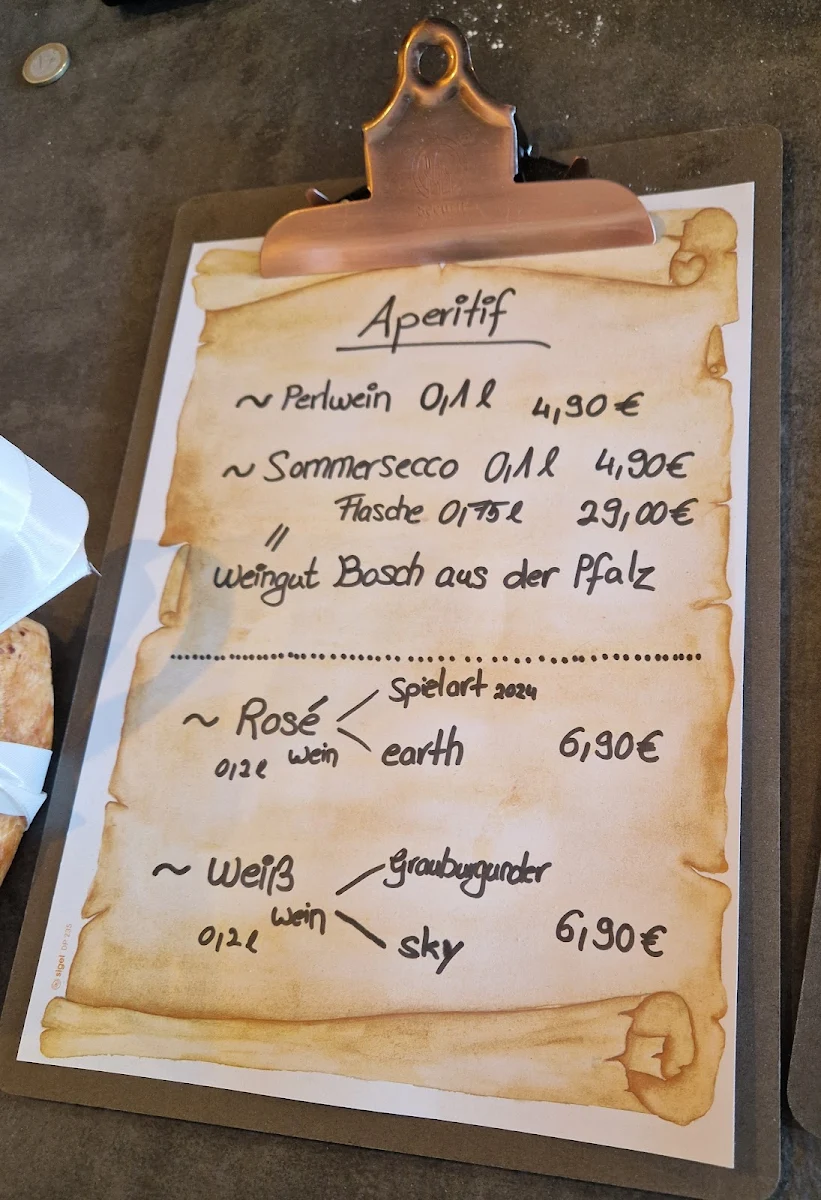 Aperitif
~ Perlwein 0,1 l 4,90€
~ Sommersecco 0,1 l 4,90€
Flasche 0,75 l 29,00€
"
Weingut Bosch aus der Pfalz
~ Rosé wein 0,2 l
Spielart 2024
earth 6,90€
~ Weiß wein 0,2 l
Grauburgunder
sky 6,90€
sigel DP 235